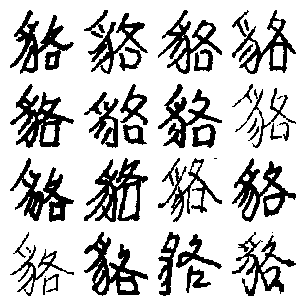 貉貉貉貉
貉貉貉貉
貉貉貉貉
貉貉貉貉